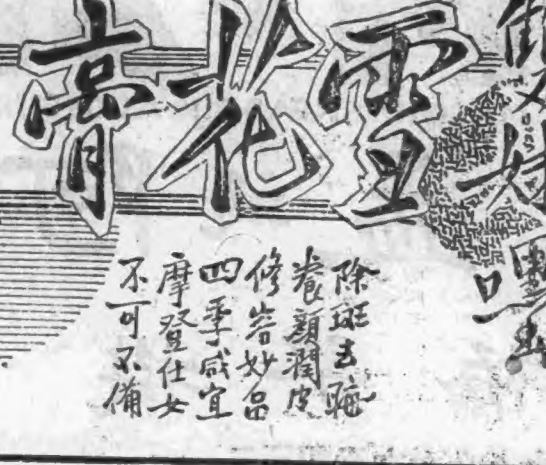 雙妹嚜
雪花膏
除斑去皰
養顏潤皮
修容妙品
四季咸宜
摩登仕女
不可不備